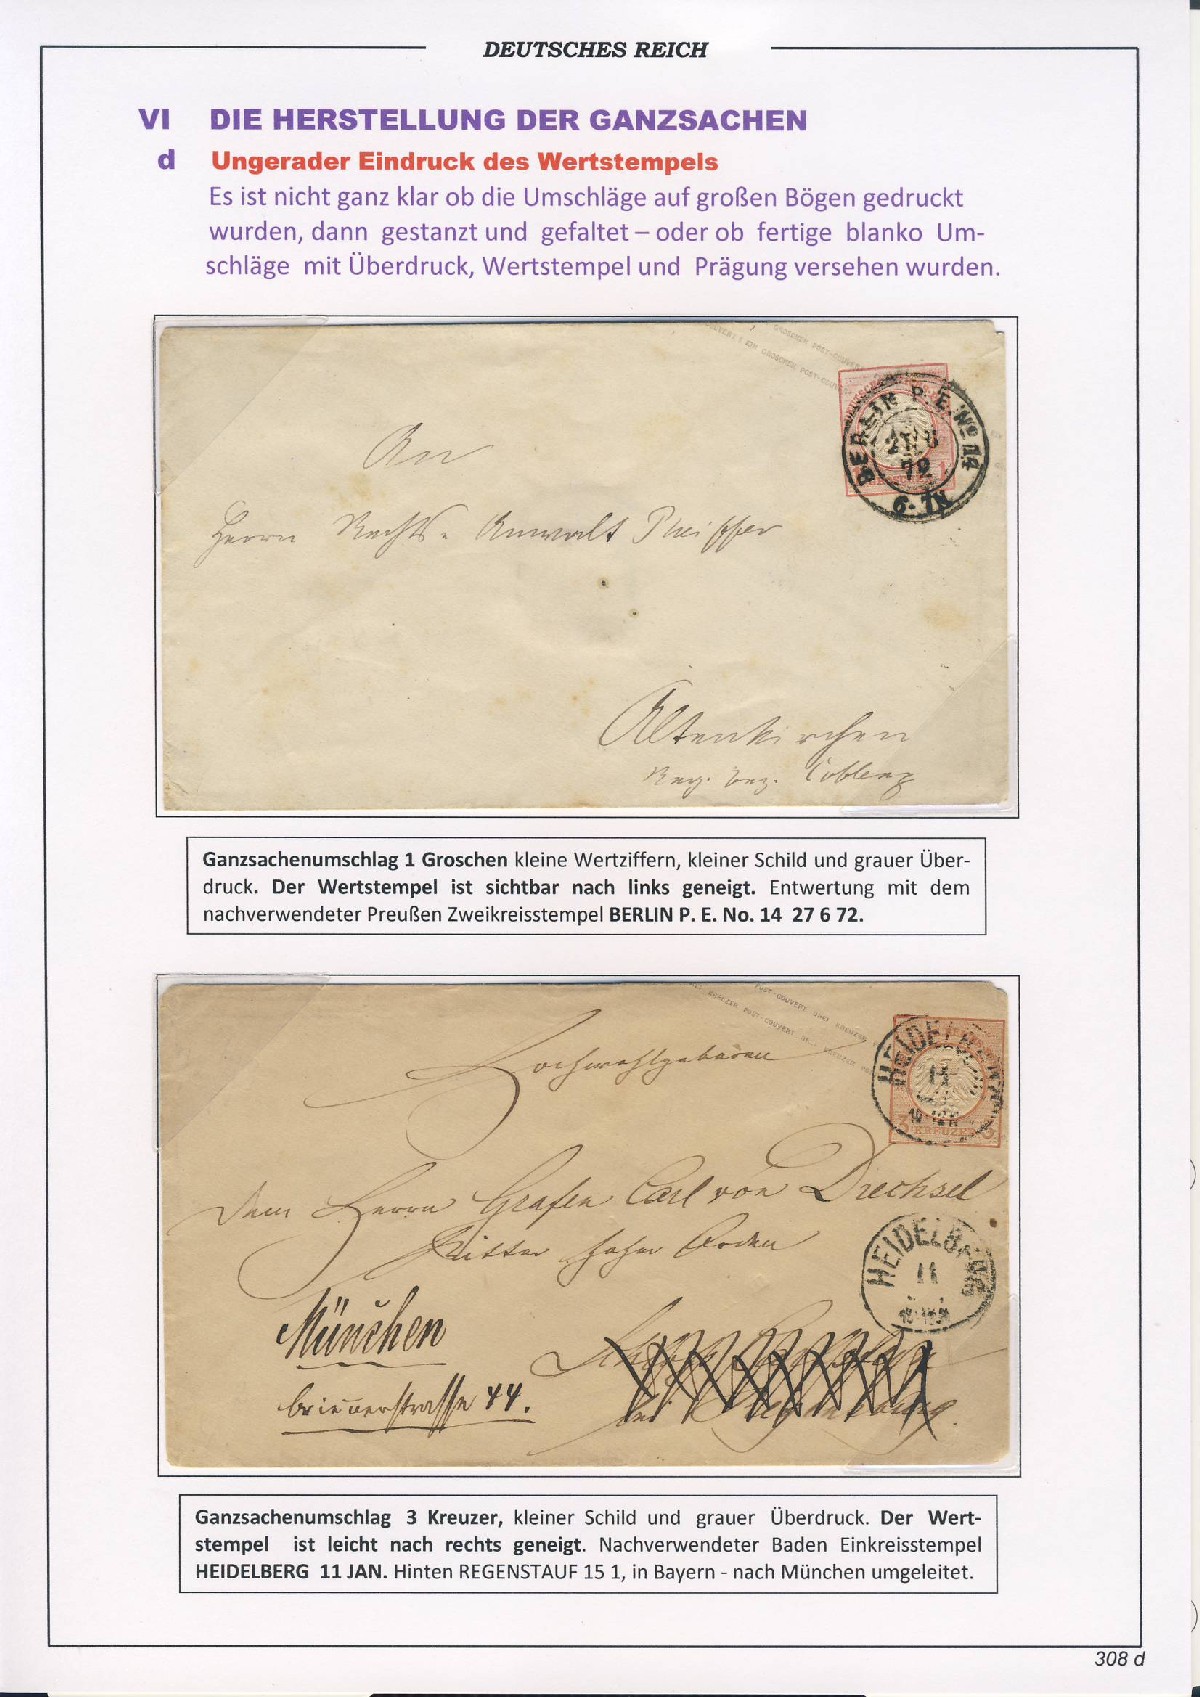 DEUTSCHES REICH
VI DIE HERSTELLUNG DER GANZSACHEN
d Ungerader Eindruck des Wertstempels
Es ist nicht ganz klar ob die Umschläge auf großen Bögen gedruckt
wurden, dann gestanzt und gefaltet – oder ob fertige blanko Um-
schläge mit Überdruck, Wertstempel und Prägung versehen wurden.
BERLIN P. E. No 14
72
6-7N
An
Herrn Rechts-Anwalt Pfeiffer
Altenkirchen
Reg. Bez. Coblenz
Ganzsachenumschlag 1 Groschen kleine Wertziffern, kleiner Schild und grauer Über-
druck. Der Wertstempel ist sichtbar nach links geneigt. Entwertung mit dem
nachverwendeter Preußen Zweikreisstempel BERLIN P. E. No. 14 27 6 72.
HEIDELBERG
11
3 KREUZER 3
Hochwohlgeboren
Dem Herrn Grafen Carl von Drechsel
Ritter hoher Orden
HEIDELBERG
11
München
briennerstrasse 44.
Ganzsachenumschlag 3 Kreuzer, kleiner Schild und grauer Überdruck. Der Wert-
stempel ist leicht nach rechts geneigt. Nachverwendeter Baden Einkreisstempel
HEIDELBERG 11 JAN. Hinten REGENSTAUF 15 1, in Bayern - nach München umgeleitet.
308 d